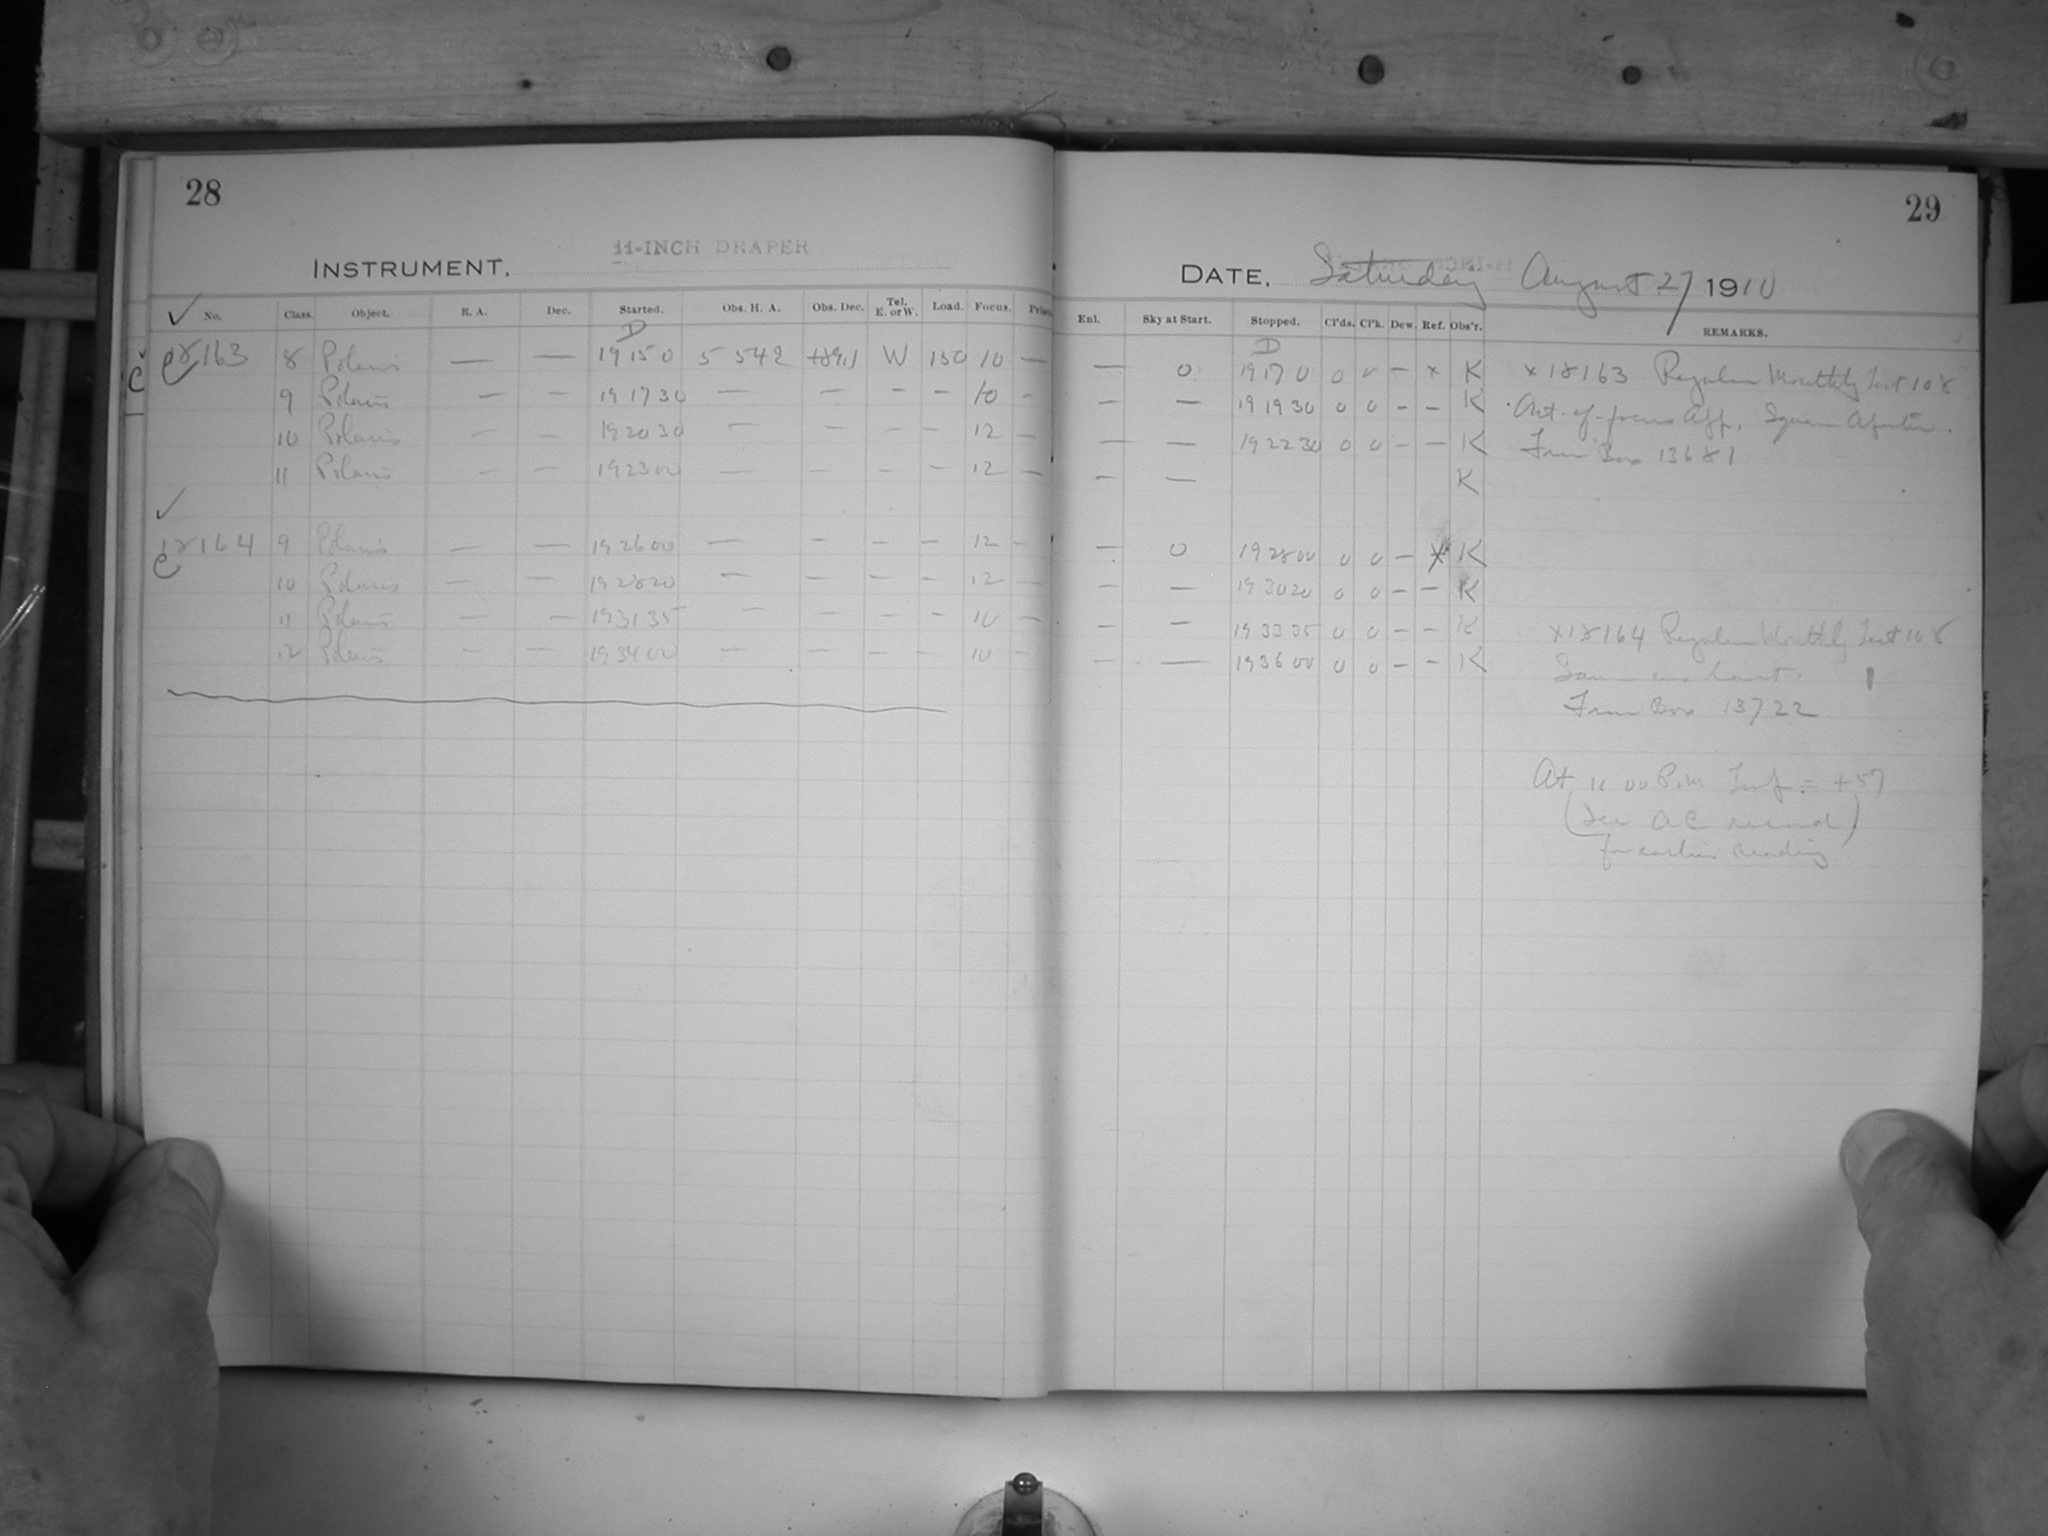 28
INSTRUMENT, 11-INCH DRAPER
No. Class. Object. R. A. Dec. Started. Obs. H. A. Obs. Dec. Tel. E. or W. Load. Focus.
D
18163 8 Polaris — — 19 15 0 5 54 2 W 150 10 —
9 Polaris — — 19 17 30 — — — — 10 -
10 Polaris — — 19 20 30 — — — — 12 —
11 Polaris — — 19 23 00 — — — — 12 —
18164 9 Polaris — — 19 26 00 — — — — 12 —
10 Polaris — — 19 28 20 — — — — 12 —
11 Polaris — — 19 31 35 — — — — 10 —
12 Polaris — — 19 34 00 — — — — 10 —
29
DATE, Saturday August 27 1910
Enl. Sky at Start. Stopped. Cl'ds. Cl'k. Dew. Ref. Obs'r. REMARKS.
D
— 0 19 17 0 0 0 — x K x 18163 Regular Monthly Test 108
— — 19 19 30 0 0 - - K Out-of-focus App. Square Aperture.
— — 19 22 30 0 0 - — K From Box 13681
— — K
— 0 19 28 00 0 0 — x K
— — 19 30 20 0 0 — — K
— — 19 33 35 0 0 - - K x 18164 Regular Monthly Test 108
— — 19 36 00 0 0 - - K Same as last.
From Box 13722
At 11 00 P.M. = +57
(See AC record)
for earlier reading